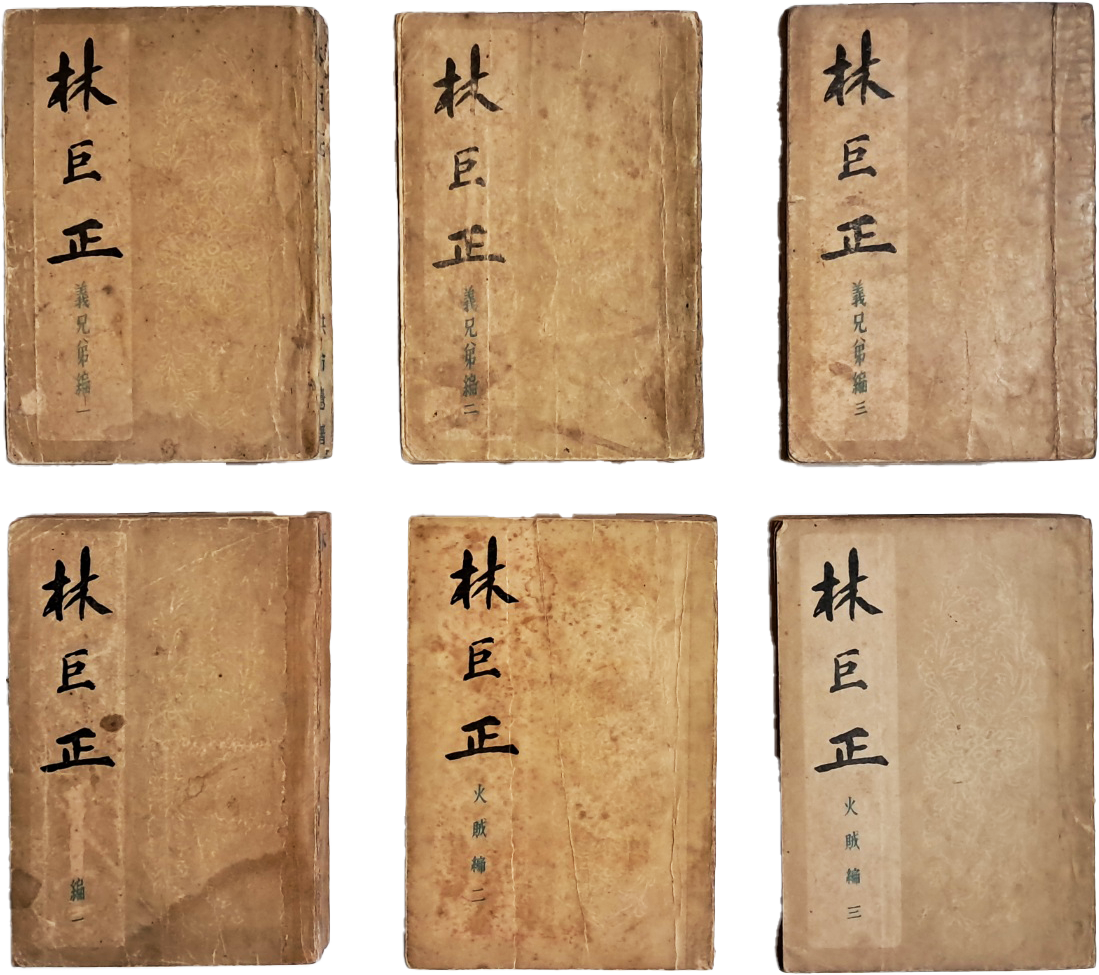 林巨正
義兄弟編一
林巨正
義兄弟編二
林巨正
義兄弟編三
林巨正
編一
林巨正
火賊編二
林巨正
火賊編三